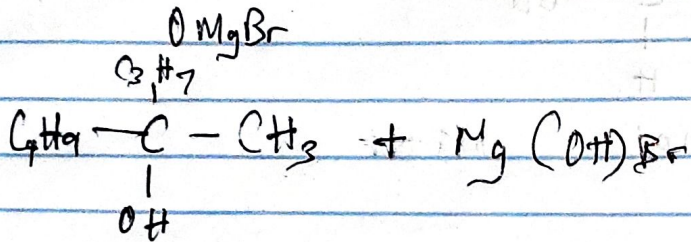 OMgBr
C3H7
C4H9 — C — CH3 + Mg (OH) Br
OH